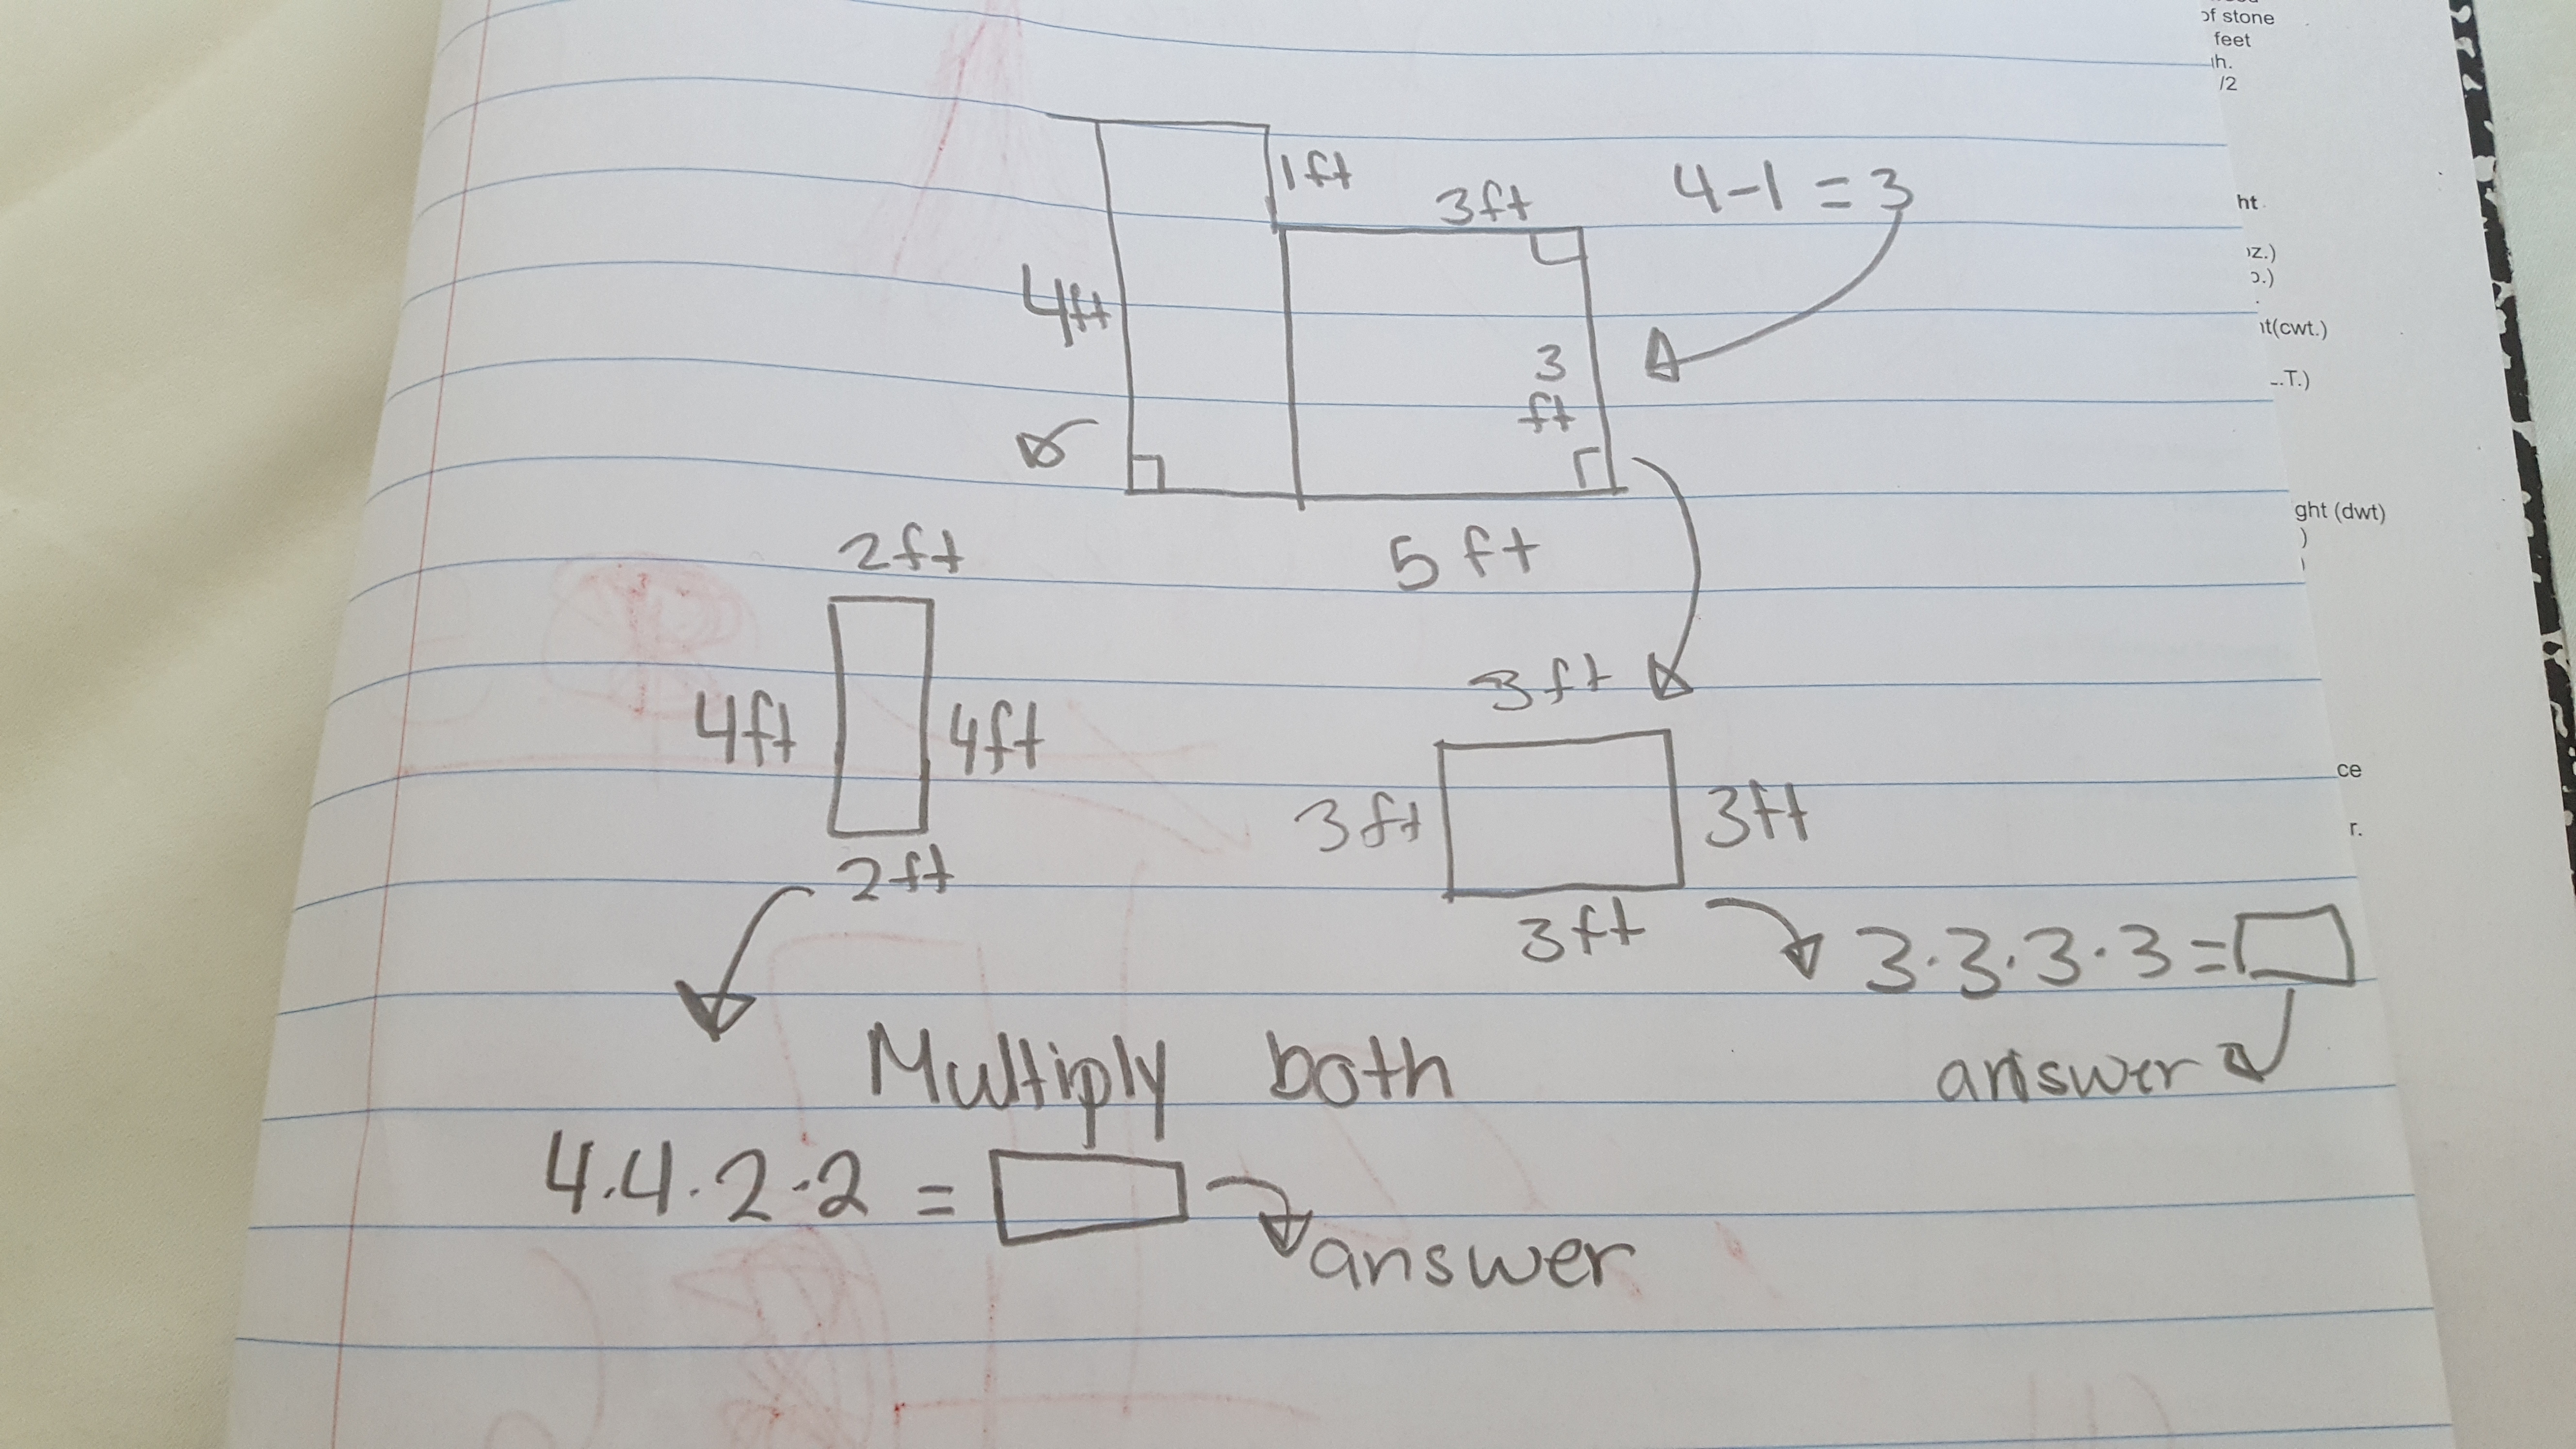 of stone
feet
/2
1ft
3ft
4-1=3
ht
z.)
.)
4ft
3
ft
t(cwt.)
.T.)
5 ft
ght (dwt)
)
2ft
4ft
4ft
2ft
3ft
3ft
3ft
3ft
ce
r.
3·3·3·3=
answer
Multiply both
4·4·2·2 =
answer